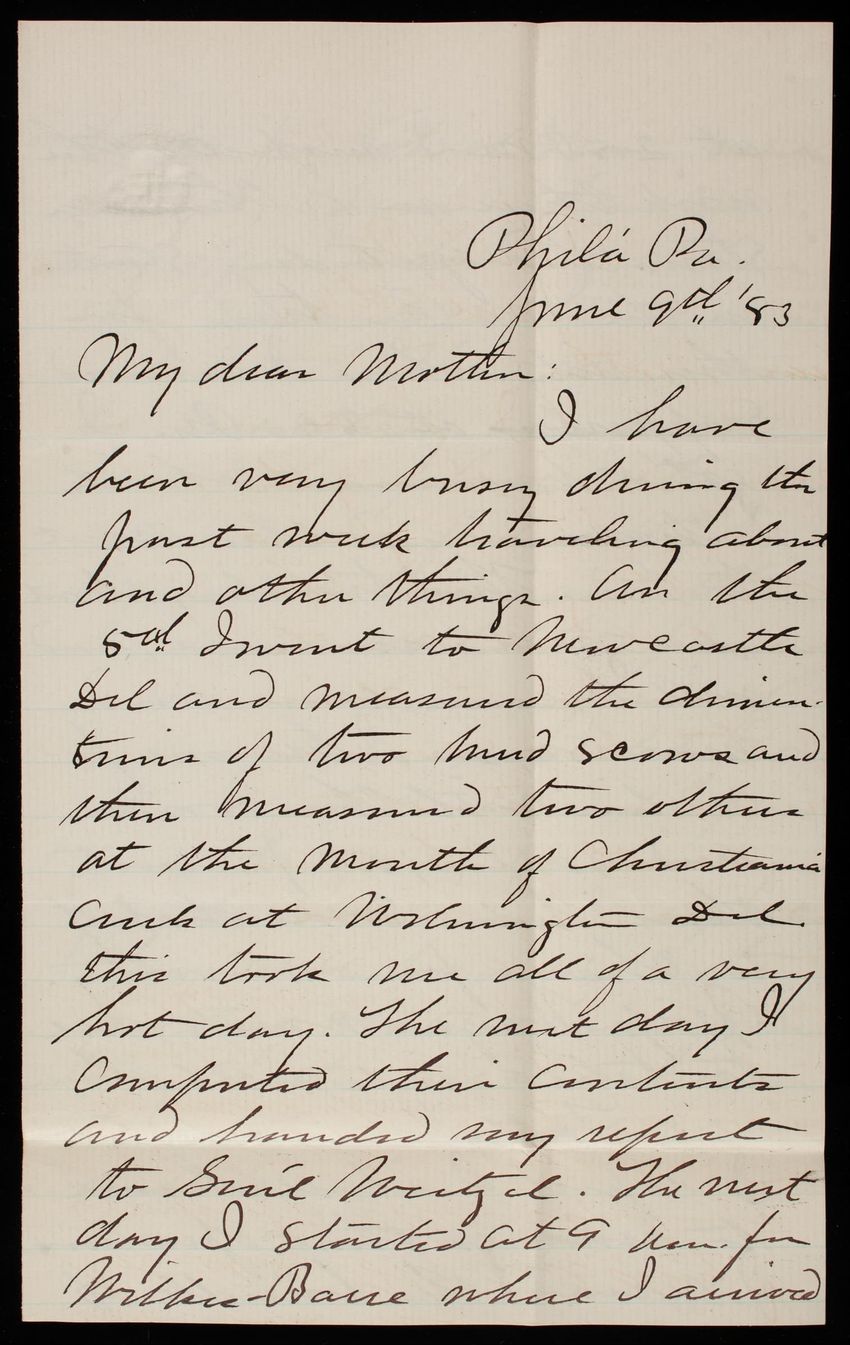 Phila Pa.
June 9th '83
My dear Mother:
I have
been very busy during the
past week traveling about
and other things. On the
5th I went to Newcastle
Del and measured the dimen-
sions of two mud scows and
then measured two others
at the mouth of Christiania
creek at Wilmington Del.
This took me all of a very
hot day. The next day I
computed their contents
and handed my report
to Gen'l Weitzel. The next
day I started at 9 am. for
Wilkes-Barre where I arrived